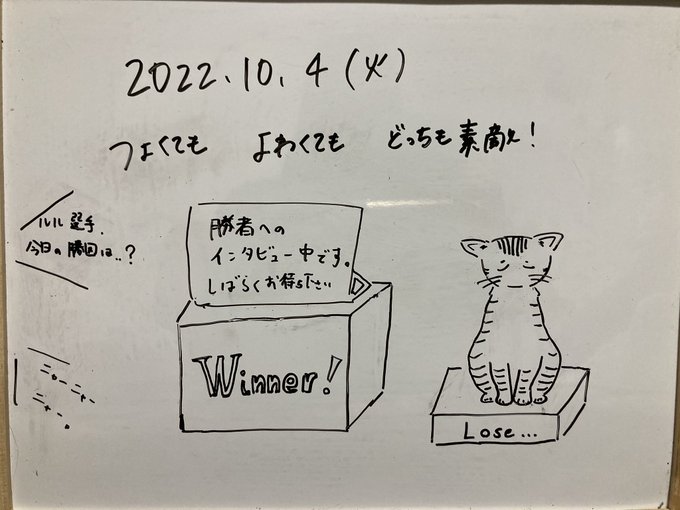 2022.10.4(火)
つよくても よわくても どっちも素敵!
ルル選手、
今日の勝因は..?
勝者への
インタビュー中です。
しばらくお待ち下さい
Winner!
ニャーニャー
ニャー。
Lose...